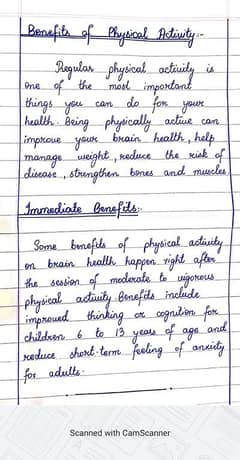 Benefits of Physical Activity:-
Regular physical activity is
one of the most important
things you can do for your
health. Being physically active can
improve your brain health, help
manage weight, reduce the risk of
disease, strengthen bones and muscles
Immediate Benefits:-
Some benefits of physical activity
on brain health happen right after
the session of moderate to vigorous
physical activity. Benefits include
improved thinking or cognition for
children 6 to 13 years of age and
reduce short-term feeling of anxiety
for adults.
Scanned with CamScanner